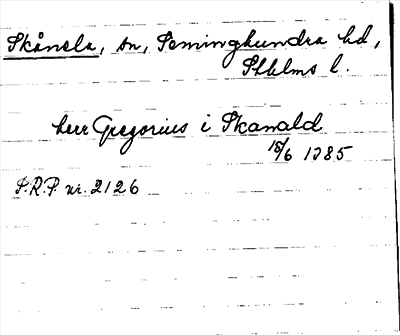 Skånela, sn, Seminghundra hd,
Sthlms l.
herr Gregorius i Skanald
15/6 1385
S.R.P. nr. 2126